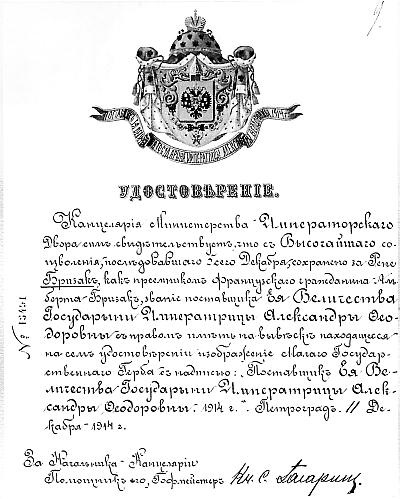 УДОСТОВѢРЕНІЕ.
Канцелярія Министерства Императорскаго
Двора симъ свидѣтельствуетъ, что съ Высочайшаго со-
изволенія, послѣдовавшаго сего Декабря, сохранено за Рене
Бризакъ, какъ преемникомъ французскаго гражданина Аль-
берта Бризакъ, званіе поставщика Ея Величества
Государыни Императрицы Александры Ѳео-
доровны съ правомъ имѣть на вывѣскѣ находящееся
на семъ удостовѣреніи изображеніе Малаго Государ-
ственнаго Герба съ надписью: „Поставщикъ Ея Ве-
личества Государыни Императрицы Алек-
сандры Ѳеодоровны." 1914 г. Петроградъ, 11 Де-
кабря 1914 г.
№ 13451
За Начальника Канцеляріи
Помощникъ его, Гофмейстеръ Кн. С. Гагаринъ